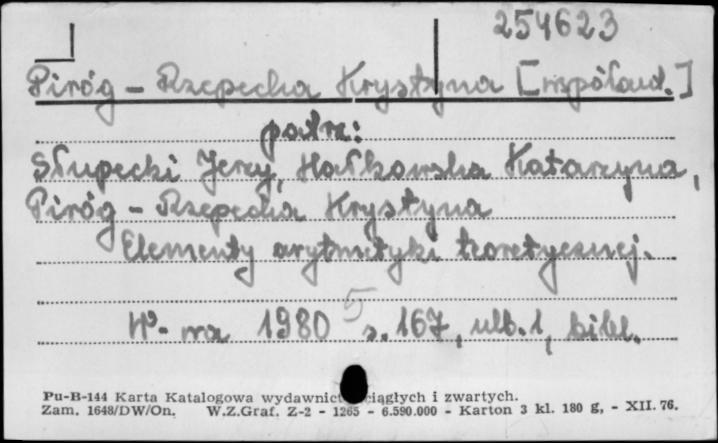 254623
Piróg - Rzepecka Krystyna [współaut.]
patrz:
Słupecki Jerzy, Hałkowska Katarzyna,
Piróg - Rzepecka Krystyna
Elementy arytmetyki teoretycznej.
5
W-wa 1980 s. 167, nlb. 1, bibl.
Pu-B-144 Karta Katalogowa wydawnict ciągłych i zwartych.
Zam. 1648/DW/On. W.Z.Graf. Z-2 - 1265 - 6.590.000 - Karton 3 kl. 180 g, - XII. 76.